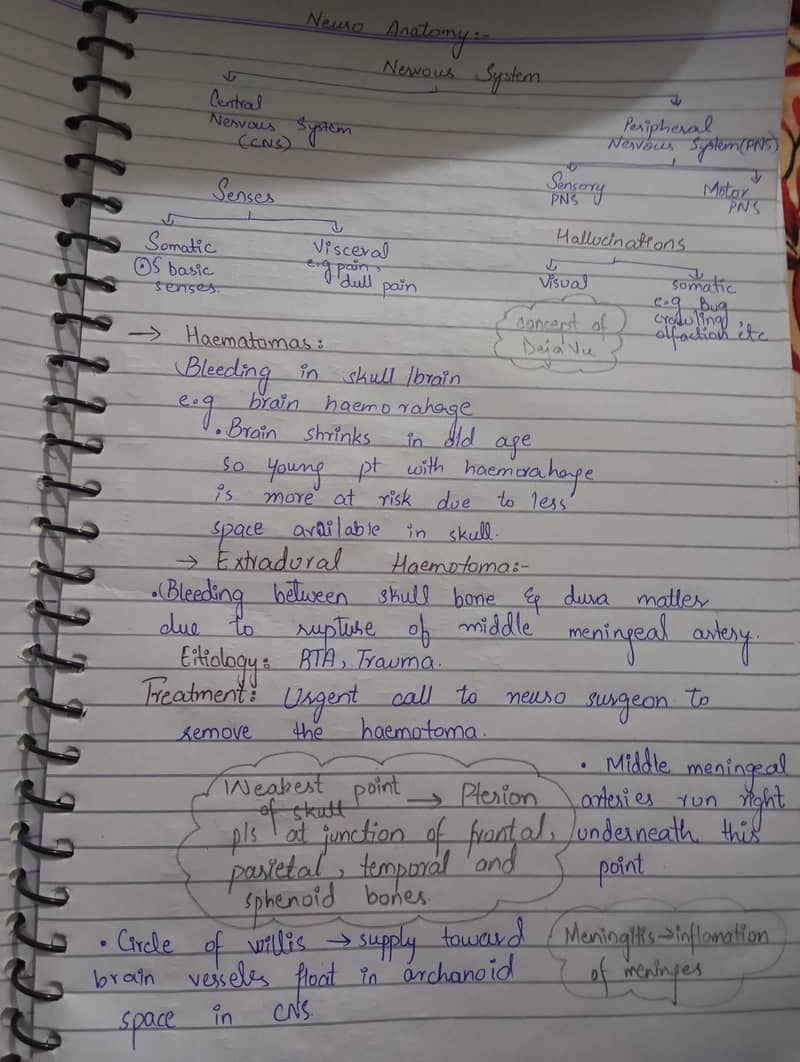 Neuro Anatomy:-
Nervous System
Central
Nervous System
(CNS)
Peripheral
Nervous System(PNS)
Sensory
PNS
Motor
PNS
Senses
Somatic
5 basic
senses.
Visceral
e.g pain,
dull pain
Hallucinations
Visual
somatic
e.g Bug
crawling
olfaction etc
concept of
Deja Vu
→ Haematomas:
Bleeding in skull/brain
e.g brain haemorahage
• Brain shrinks in old age
so young pt with haemorahage
is more at risk due to less
space available in skull.
→ Extradural Haemotoma:-
• Bleeding between skull bone & dura matter
due to rupture of middle meningeal artery.
Eitiology: RTA, Trauma.
Treatment: Urgent call to neuro surgeon to
remove the haemotoma.
Weakest point → Pterion
of skull
pls at junction of frontal,
parietal, temporal and
sphenoid bones.
• Middle meningeal
arteries run right
underneath this
point
• Circle of willis → supply toward
brain vesseles float in archanoid
space in CNS.
Meningitis → inflamation
of meninges